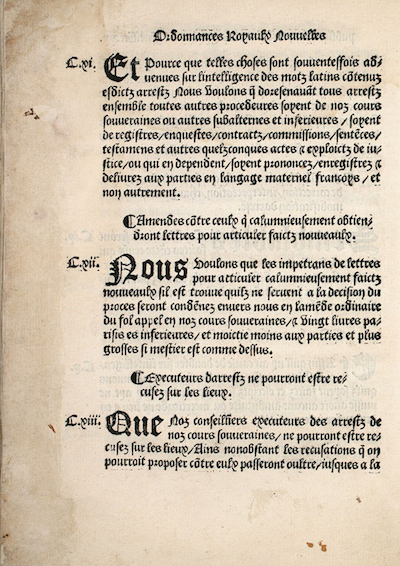 Ordonnances Royaulx Nouvelles
C.xi. Et Pource que telles choses sont souuenteffois ad-
uenues sur lintelligence des motz latins cōtenuz
esdictz arrestz Nous voulons q̄ doresenauāt tous arrestz
ensemble toutes autres procedeures soyent de noz cours
souueraines ou autres subalternes et inferieures / soyent
de registres / enquestes / contractz / commissions / sentēces /
testamens et autres quelzconques actes ⁊ exploictz de iu-
stice / ou qui en dependent / soyent prononcez / enregistrez ⁊
deliurez aux parties en langage maternel francoys / et
non autrement.
¶ Amendes cōtre ceulx q̄ calumnieusement obtien-
dront lettres pour articuler faictz nouueaulx.
C.xii. Nous Voulons que les impetrans de lettres
pour articuler calumnieusement faictz
nouueaulx sil est trouue quilz ne seruent a la decision du
proces seront condēnez enuers nous en lamēde ordinaire
du fol appel en noz cours souueraines / ⁊ vingt liures pa-
risis es inferieures / et moictie moins aux parties et plus
grosses si mestier est comme dessus.
¶ Executeurs darrestz ne pourront estre re-
cusez sur les lieux.
C.xiii. Que Noz conseilliers executeurs des arrestz de
noz cours souueraines / ne pourront estre re-
cusez sur les lieux / Ains nonobstant les recusations q̄ on
pourroit proposer cōtre eulx passeront oultre / iusques a la